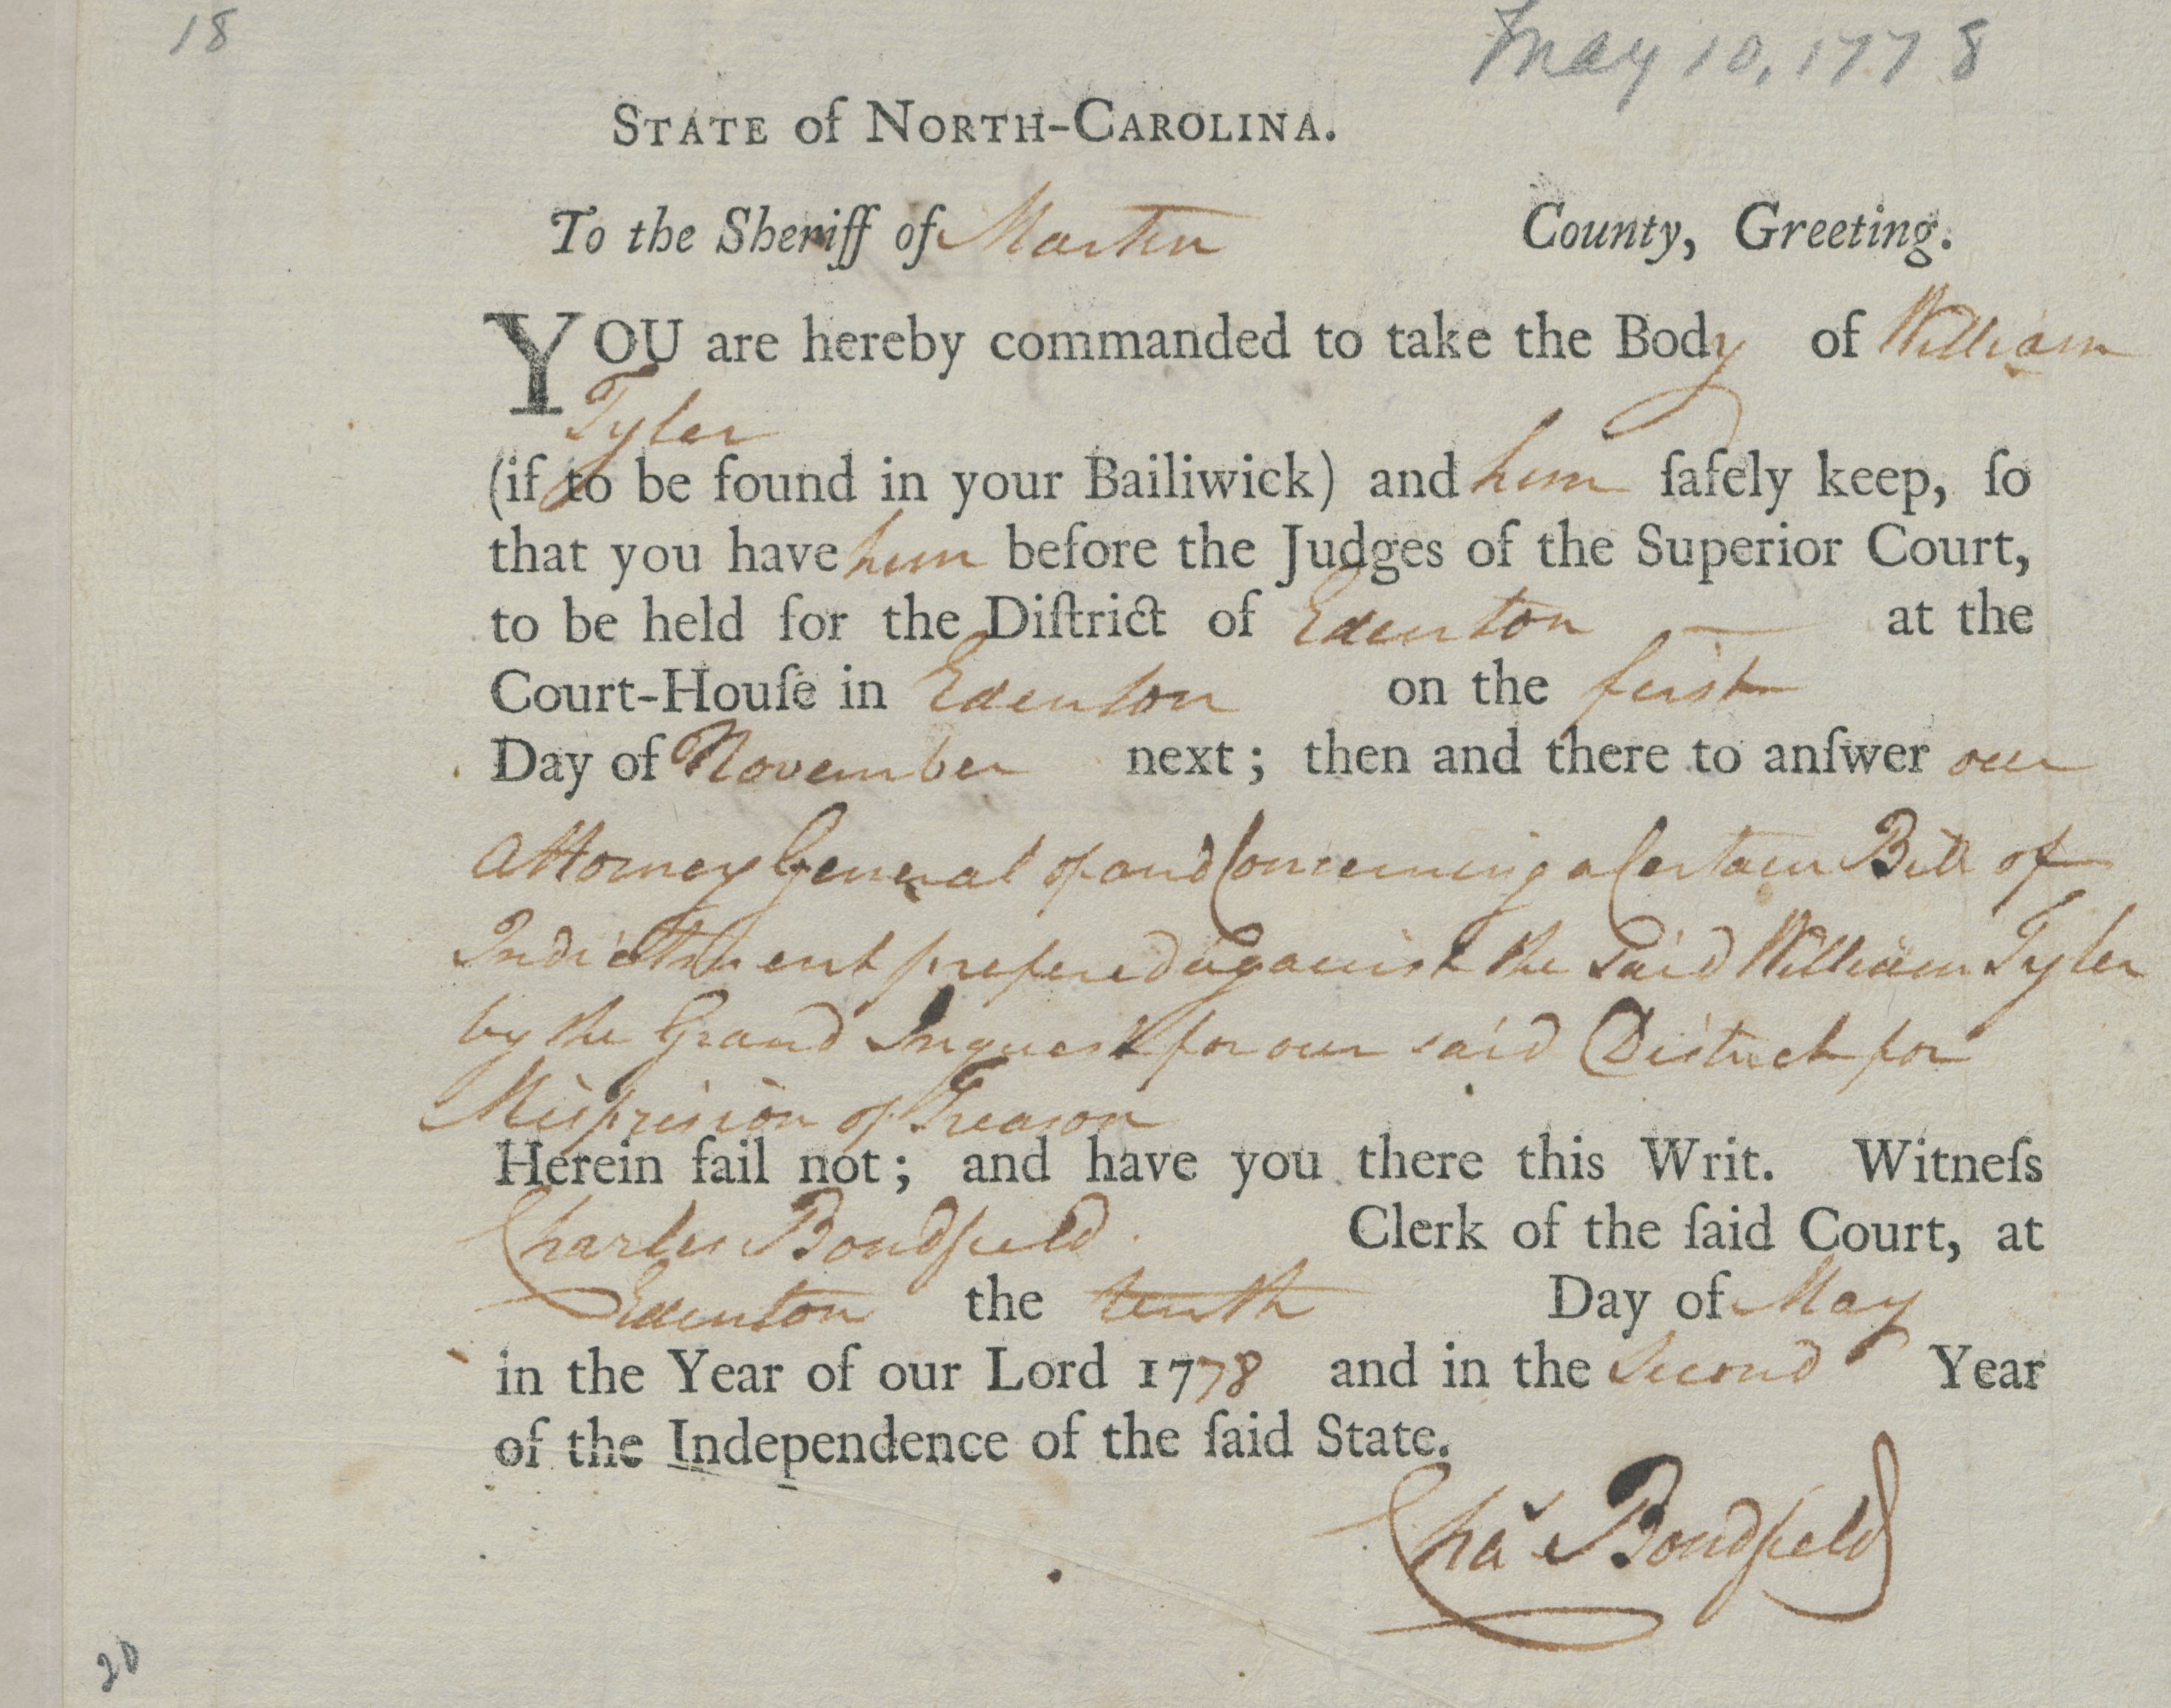 18
May 10, 1778
STATE of NORTH-CAROLINA.
To the Sheriff of Martin County, Greeting.
YOU are hereby commanded to take the Body of William
Tyler
(if to be found in your Bailiwick) and him ſafely keep, ſo
that you have him before the Judges of the Superior Court,
to be held for the Diſtrict of Edenton — at the
Court-Houſe in Edenton on the first
Day of November next; then and there to anſwer our
Attorney General of and Concerning a Certain Bill of
Indictment prefered against the Said William Tyler
by the Grand Inquest for our said District for
Misprision of Treason
Herein fail not; and have you there this Writ. Witneſs
Charles Bondfield Clerk of the ſaid Court, at
Edenton the tenth Day of May
in the Year of our Lord 1778 and in the Second Year
of the Independence of the ſaid State.
Chas Bondfield
20